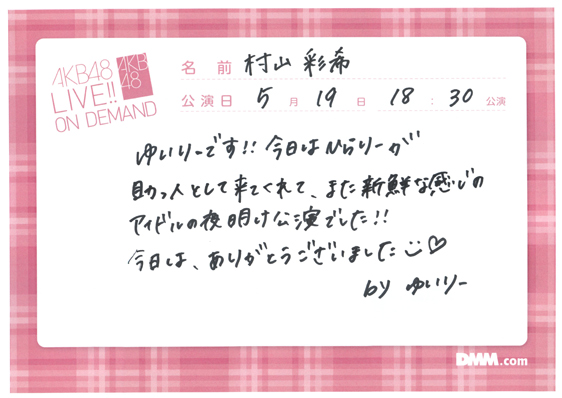 AKB48
LIVE!!
ON DEMAND
AKB
48
名 前 村山 彩希
公演日 5 月 19 日 18 : 30 公演
ゆいりーです!! 今日はひらりーが
助っ人として来てくれて、また新鮮な感じの
アイドルの夜明け公演でした!!
今日は、ありがとうございました
by ゆいりー
DMM.com